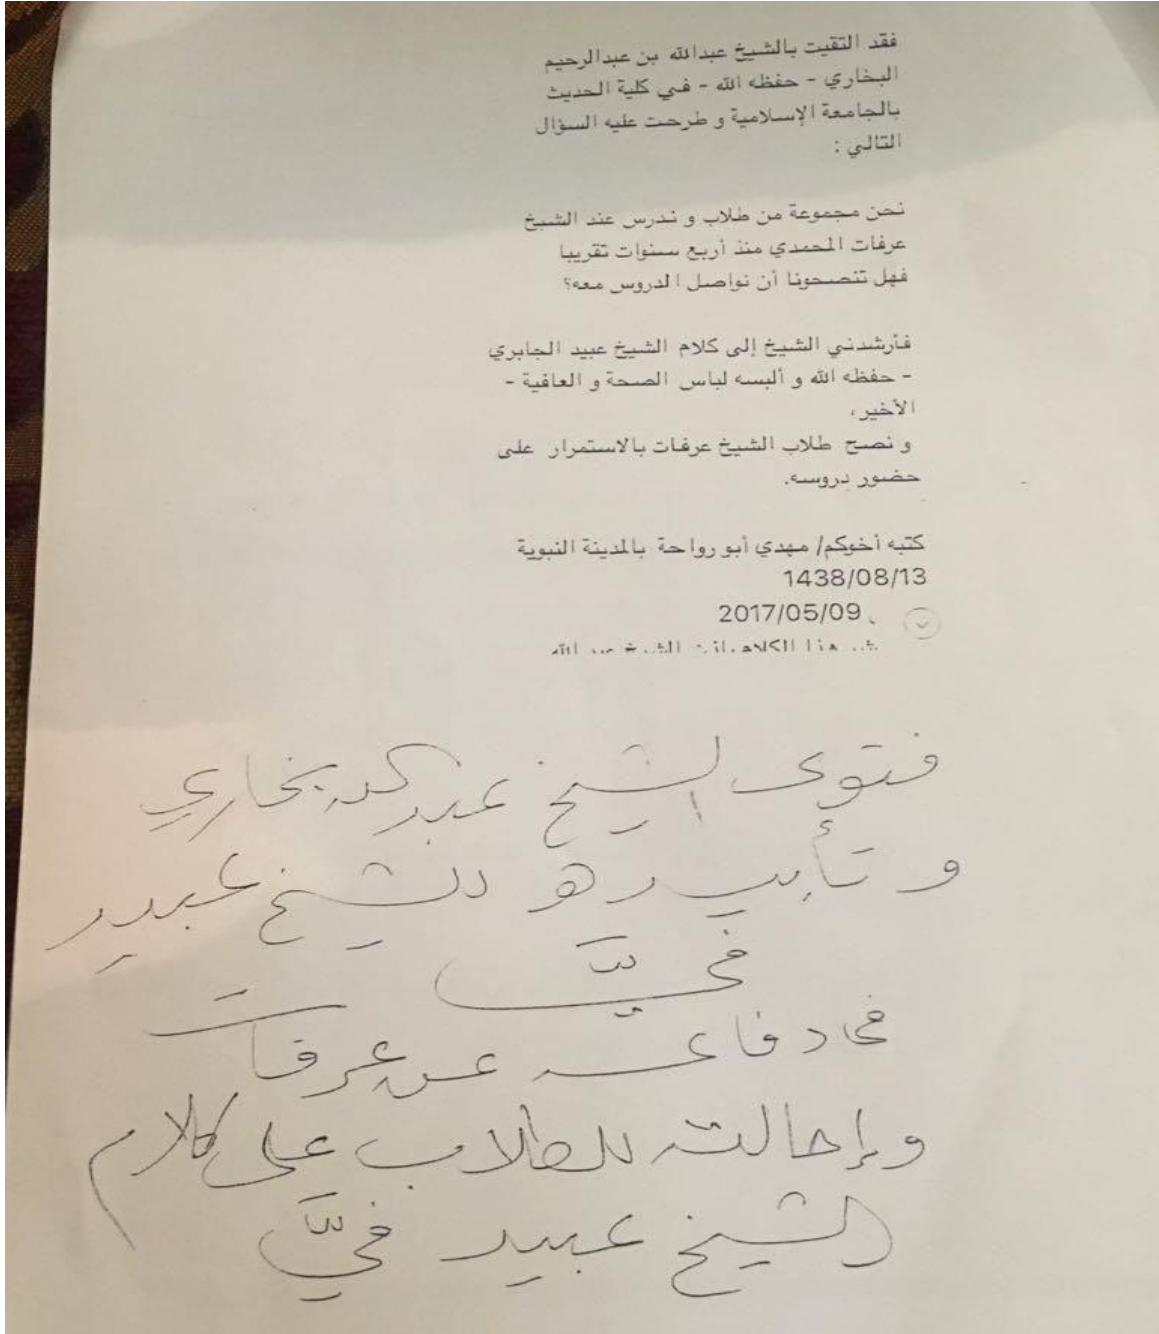 فقد التقيت بالشيخ عبدالله بن عبدالرحيم
البخاري - حفظه الله - في كلية الحديث
بالجامعة الإسلامية و طرحت عليه السؤال
التالي :
نحن مجموعة من طلاب و ندرس عند الشيخ
عرفات المحمدي منذ أربع سنوات تقريبا
فهل تنصحونا أن نواصل الدروس معه؟
فأرشدني الشيخ إلى كلام الشيخ عبيد الجابري
- حفظه الله و ألبسه لباس الصحة و العافية -
الأخير،
و نصح طلاب الشيخ عرفات بالاستمرار على
حضور دروسه.
كتبه أخوكم/ مهدي أبو رواحة بالمدينة النبوية
1438/08/13
2017/05/09
هذا الكلام الشيخ عبد الله
فتوى الشيخ عبد الله بخاري
و تأييده للشيخ عبيد
فيَّ
في دفاعه عن عرفات
وإحالته للطلاب على كلام
الشيخ عبيد فيَّ